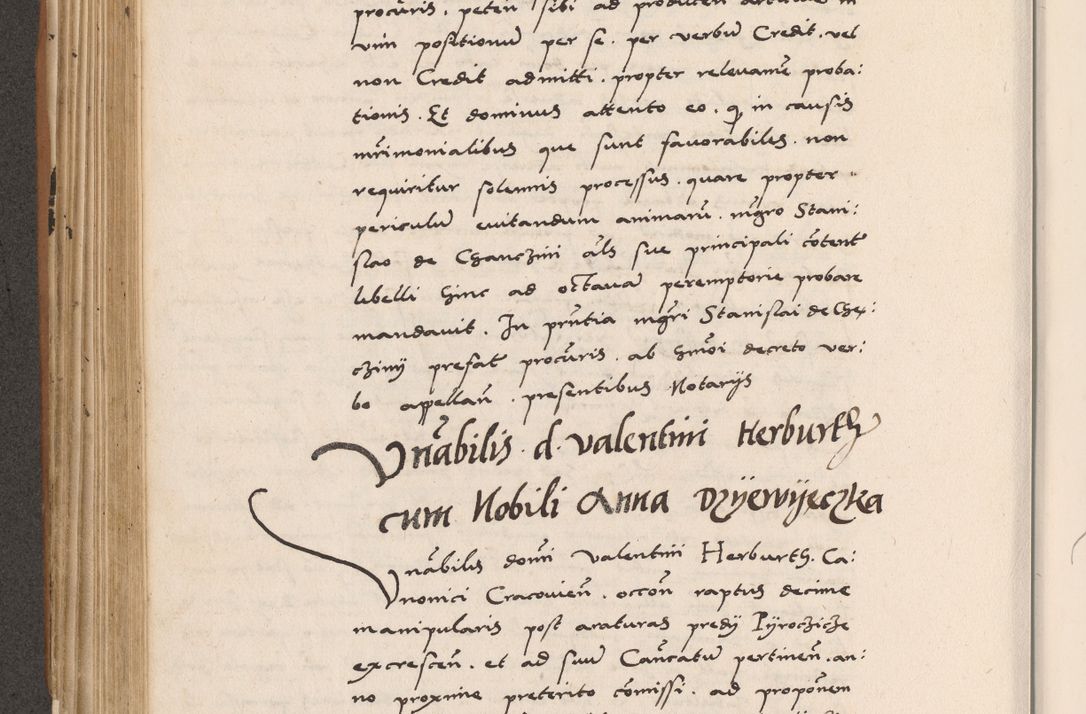 procuris. peten sibi ad producen articulie in
vim positionū per se. per verbū Credit. vel
non Credit admitti. propter relevamē proba:
tionis. Et dominus attento eo. qȝ in causis
mr̄imonialibus que sunt favorabiles. non
requiritur solennis processus. quare propter
periculū evitandum animarū. mgr̄o Stani:
slao de Chanczini als sue principali cōtent
libelli hinc ad octavā peremptorie probare
mandavit. In pn̄tia mgr̄i Stanislai de Chȩ:
cziny prefat procuris. ab hmōi decreto ver:
bo appellan̄. presentibus Notarijs
Vn̄abilis. d. valentini Herburth
cum Nobili Anna Dzijewijeczka
Vn̄abilis domi valentini Herburth. Ca:
nonici Cracovien̄. occōn raptus decime
manipularis post araturas predij Pijroczicze
excrescen̄. et ad suū Cancatū pertinen̄. an:
no proxime preterito cōmissi. ad proponem